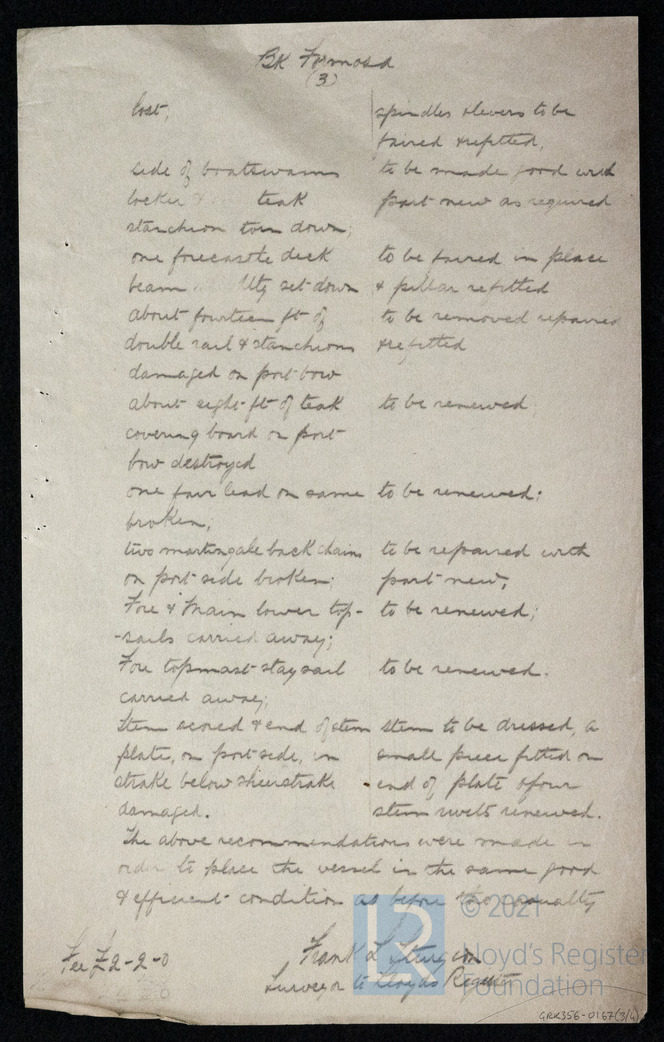 Bk Formosa
(3)
lost; spindles & levers to be
faired & refitted,
side of boatswains to be made good with
locker & teak part new as required
stanchion torn down;
one forecastle deck to be faired in place
beam set down & pillar refitted
about fourteen ft of to be removed repaired
double rail & stanchions & refitted
damaged on port bow
about eight ft of teak to be renewed
covering board on port
bow destroyed
one fair lead on same to be renewed;
broken;
two martingale back chains to be repaired with
on port side broken; part new;
Fore & Main lower top- to be renewed;
-sails carried away;
Fore topmast staysail to be renewed.
carried away;
Stem scored & end of stem stem to be dressed, a
plate, on port side, in small piece fitted on
strake below sheerstrake end of plate & four
damaged. stem rivets renewed.
The above recommendations were made in
order to place the vessel in the same good
& efficient condition as before the casualty
Fee £2-2-0 Frank L. Sturgeon
Surveyor to Lloyds Register
LR © 2021
Lloyd's Register
Foundation
GRK356-0167(3/4)